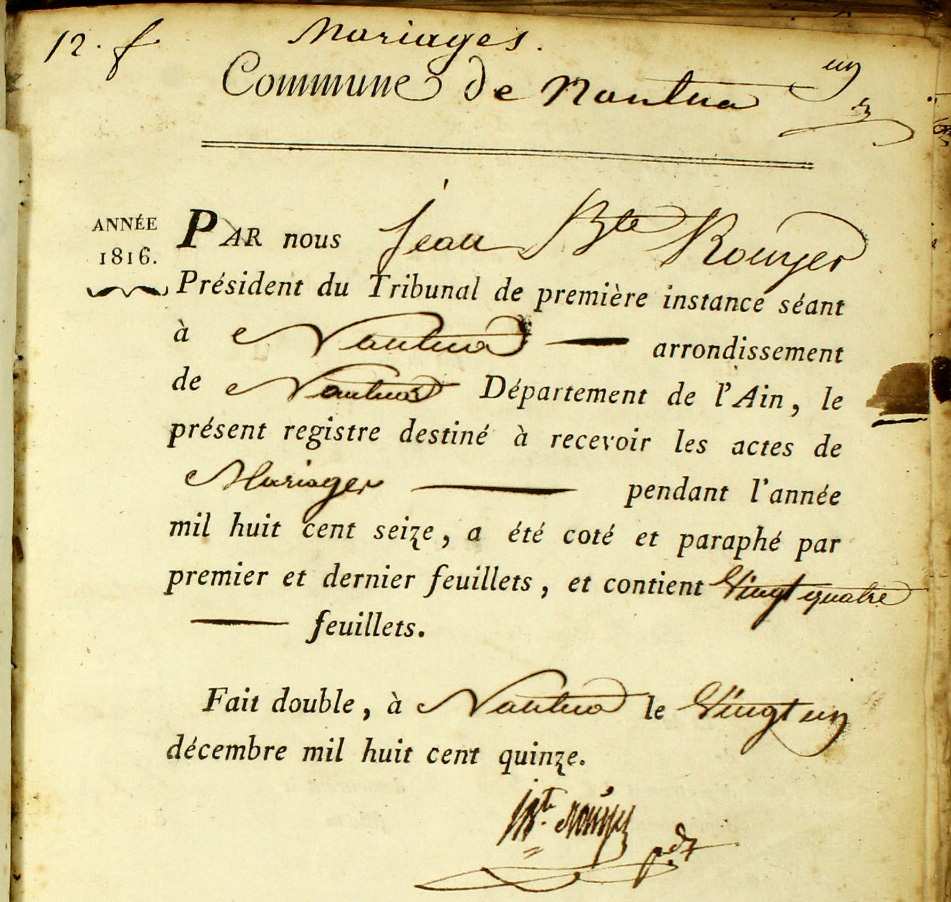 12. f Mariages.
Commune de Nantua un
ANNÉE
1816.
PAR nous Jean Bte Rouyer
Président du Tribunal de première instance séant
à Nantua — arrondissement
de Nantua Département de l'Ain, le
présent registre destiné à recevoir les actes de
Mariages — pendant l'année
mil huit cent seize, a été coté et paraphé par
premier et dernier feuillets, et contient Vingt quatre
— feuillets.
Fait double, à Nantua le Vingt un
décembre mil huit cent quinze.
JBte Rouyer pdt